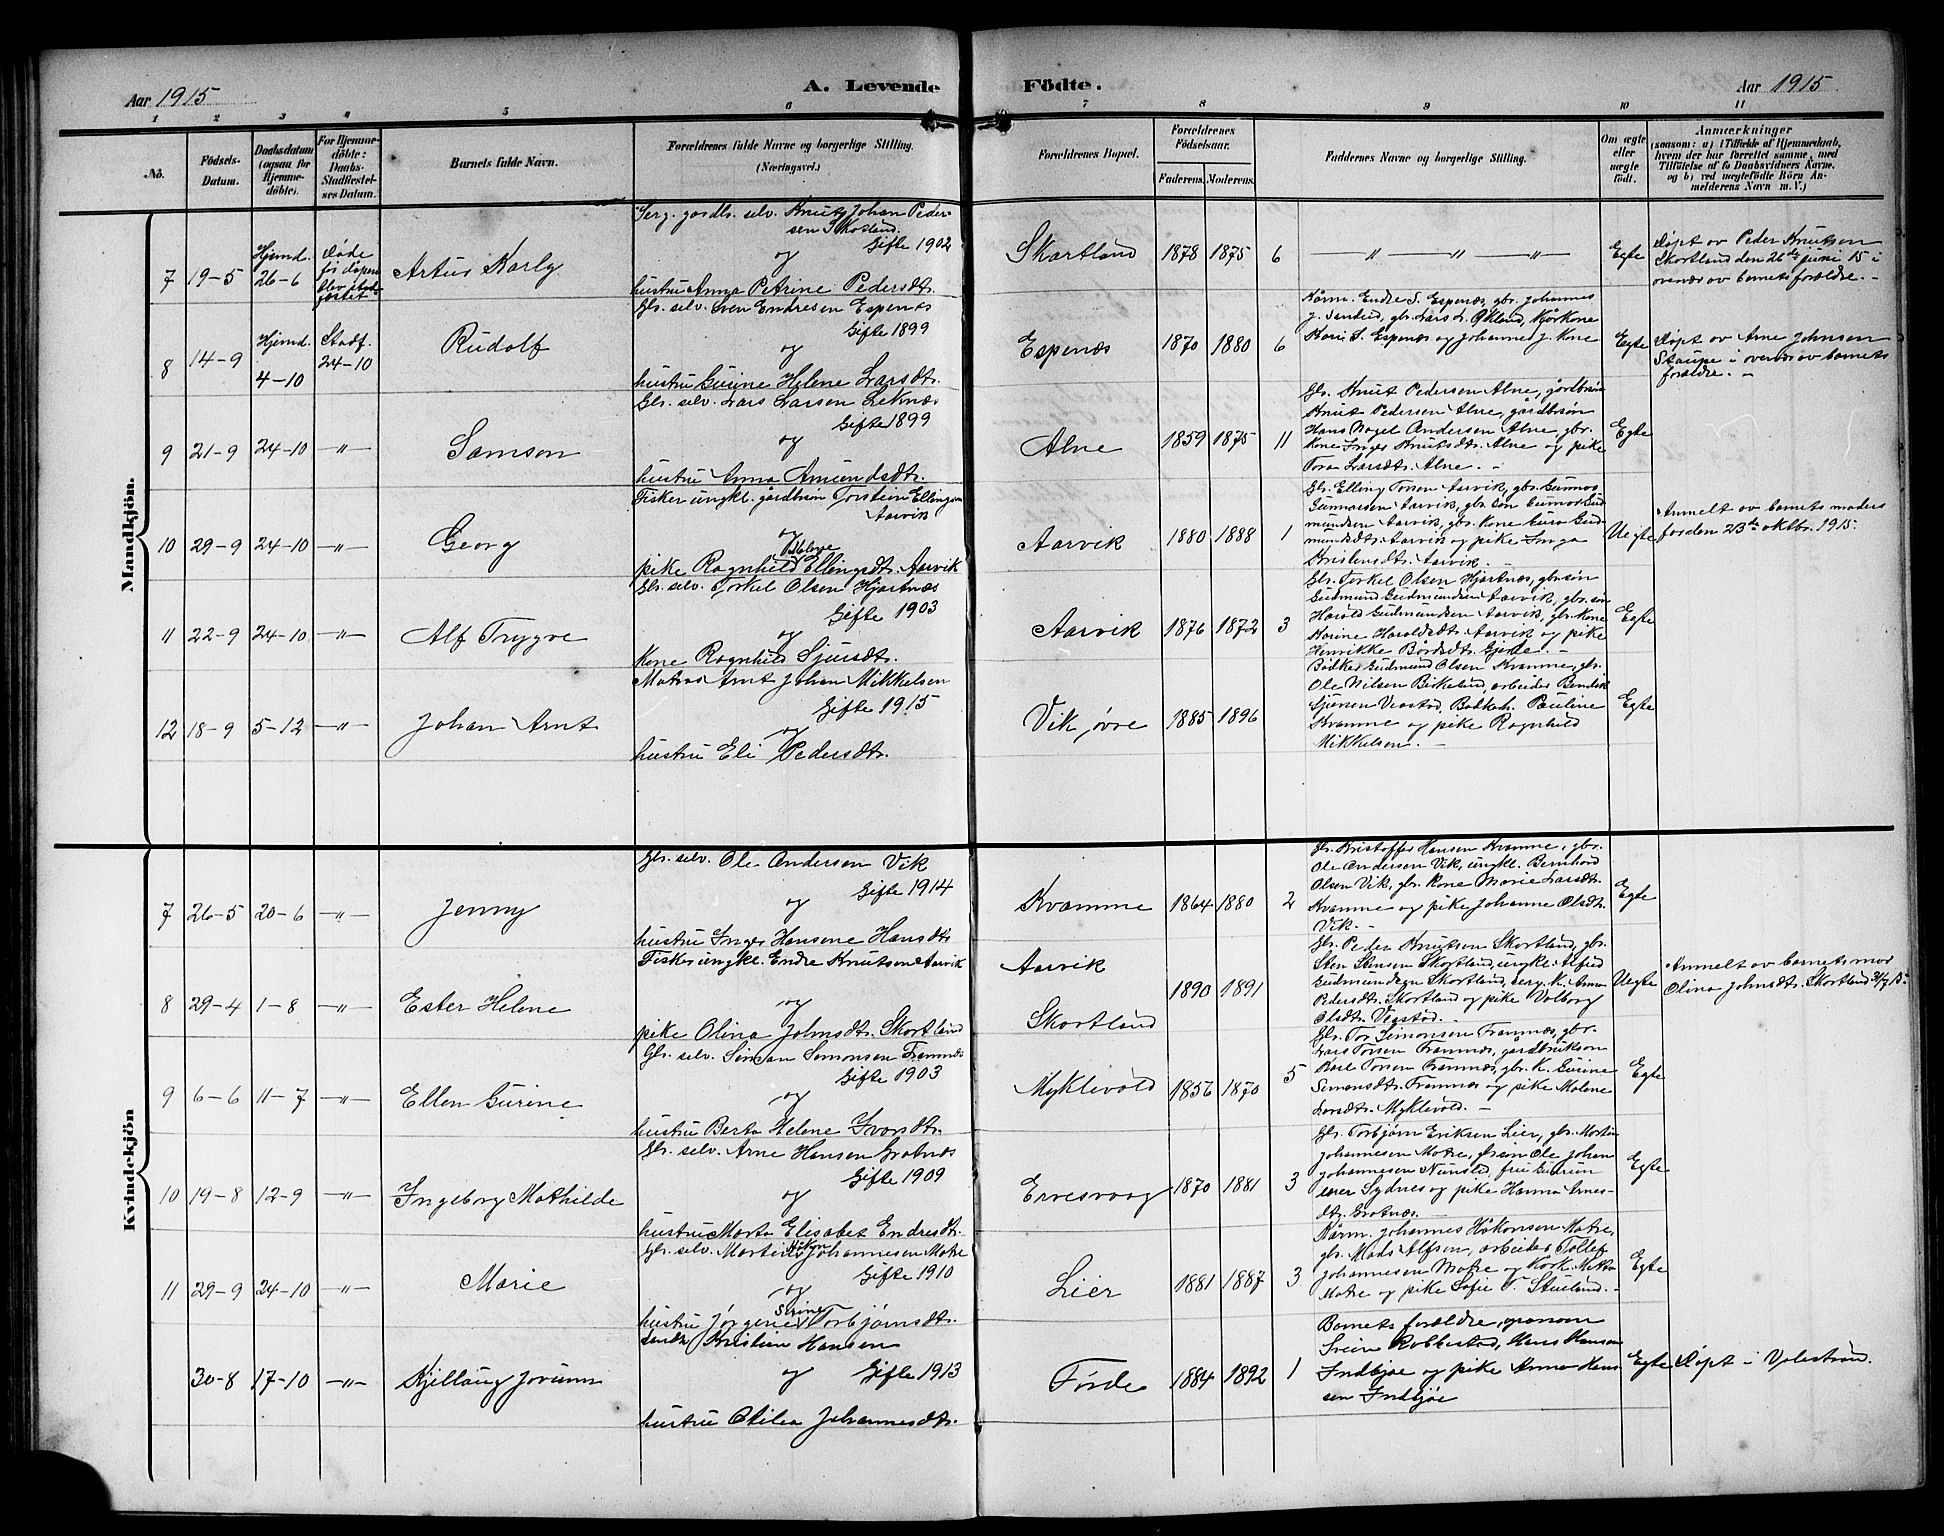 Aar 1915
A. Levende Födte.
Aar 1915
1 2 3 4 5 6 7 8 9 10 11
No.
Födsels-Datum.
Daabsdatum (ogsaa for Hjemmedöbte).
For Hjemmedöbte: Daabs-Stadfæstelses Datum.
Barnets fulde Navn.
Forældrenes fulde Navne og borgerlige Stilling.
(Næringsvei.)
Forældrenes Bopæl.
Forældrenes Födselsaar.
Faderens. Moderens.
Faddernes Navne og borgerlige Stilling.
Om ægte eller uægte födt.
Anmærkninger
(saasom: a) i Tilfælde af Hjemmedaab, hvem der har forrettet samme, med Tilföielse af to Daabsvidners Navne, og b) ved uægtefödte Börn Anmelderens Navn m. V.)
Mandkjön.
7 19-5 Hjemd. 26-6
Artur Karly
Knut Johan Pedersen Skortland.
Gifte 1902
og
hustru Anna Petrine Pedersdtr.
Skortland 1878 1875 6 -"- -"- -"- Egte
Døpt av Peder Knutsen
Skortland den 26de juni 15 i
overvær av barnets forældre. -
8 14-9 Hjemd. 4-10 Stadf. 24-10
Rudolf
Gbr. selv. Sven Endresen Espenæs
Gifte 1899
og
hustru Gurine Helene Larsdtr.
Espenæs 1870 1880 6
Kårm. Endre S. Espenæs, gbr. Johannes
J. Sandvid, gbr. Lars L. Økland, Kårkone
Kari S. Espenæs og Johannes J. Kone
Egte
Døpt av Arne Johnsen
Staupe i overvær av barnets
forældre. -
9 21-9 24-10 -"-
Samson
Gbr. selv. Lars Larsen Leknæs
Gifte 1899
og
hustru Anna Amundsdtr.
Alne 1859 1875 11
Gbr. Knut Pedersen Alne, gårdbrsøn
Knut Pedersen Alne, gårdbrsøn
Hans Nagel Andersen Alne, gbr.
Kone Inger Knutsdtr. Alne og pike
Tora Larsdtr. Alne. -
Egte
10 29-9 24-10 -"-
Georg
Fisker ungkl. gårdbrsøn Torstein Ellingsen
Aarvik
og
pike Ragnhild Ellingsdtr. Aarvik
Aarvik 1880 1888 1
Gbr. Elling Torsen Aarvik, gbr. Gunnar
Gunnarsen Aarvik, gbr. søn Gunnar Gud
mundsen Aarvik, gbr. Kone Guro Gud
mundsdtr. Aarvik og pike Inga
Kristensdtr. Aarvik. -
Uegte
Anmelt av barnets moders
far den 23de oktbr. 1915.
11 22-9 24-10 -"-
Alf Trygve
Gbr. selv. Torkel Olsen Hjartnæs
Gifte 1903
og
Kone Ragnhild Sjursdtr.
Aarvik 1876 1872 3
Gbr. Torkel Olsen Hjartnæs, gbr. søn
Gudmund Gudmundsen Aarvik, gbr. søn
Harald Gudmundsen Aarvik, gbr. Kone
Karine Haraldsdtr. Aarvik og pike
Henrikke Bårdsdtr. Gjerde. -
Egte
12 18-9 5-12 -"-
Johan Arnt
Matros Arnt Johan Mikkelsen
Gifte 1915
og
hustru Eli Pedersdtr.
Vik, øvre 1885 1896
Bødker Gudmund Olsen Kvamme, gbr.
Ole Nilsen Birkeland, arbeider Bendik
Sjursen Vegstød, Bødkeh. Pauline
Kvamme og pike Ragnhild
Mikkelsen. -
Egte
Kvindekjön
7 26-5 20-6 -"-
Jenny
Gbr. selv. Ole Andersen Vik
Gifte 1914
og
hustru Inger Hansene Hansdtr.
Kvamme 1864 1880 2
Gbr. Kristoffer Hansen Kvamme, gbr.
Ole Andersen Vik, ungkl. Bernhard
Olsen Vik, gbr. Kone Marie Larsdtr.
Kvamme og pike Johanne Olsdtr.
Vik. -
Egte
8 29-4 1-8 -"-
Ester Helene
Fisker ungkl. Endre Knutsen Aarvik
og
pike Olina Johnsdtr. Skortland
Aarvik
Skortland
1890 1891
Gbr. Peder Knutsen Skortland, gbr.
Sten Stensen Skortland, ungkl. Alfred
Gudmundsen Skortland, serg. K. Anna
Pedersdtr. Skortland og pike Valborg
Olsdtr. Vegstød. -
Uegte
Anmelt av barnets mor
Olina Johnsdtr. Skortland
9 6-6 11-7 -"-
Ellen Gurine
Gbr. selv. Simon Simonsen Framnæs
Gifte 1903
og
hustru Berta Helene Ivarsdtr.
Myklevold 1856 1870 5
Gbr. Tor Simonsen Framnæs, gbr.
Lars Torsen Framnæs, gårdbruksøn
Karl Torsen Framnæs, gbr. K. Gurine
Simonsdtr. Framnæs og pike Malene
Larsdtr. Myklevold. -
Egte
10 19-8 12-9 -"-
Ingeborg Mathilde
Gbr. selv. Arne Hansen Grotnæs
Gifte 1909
og
hustru Marta Elisabet Endresdtr.
Ervesvaag 1870 1881 3
Gbr. Torbjørn Eriksen Lier, gbr. Martin
Johannesen Matre, gbrsøn Ole Johan
Johannesen Nunstad, fru Gudrun
Sydnes og pike Hanna Arnes-
dtr. Grotnæs.
Egte
11 29-9 24-10 -"-
Marie
Gbr. selv. Martin Håkon Johannesen Matre
Gifte 1910
og
hustru Jørgine Serine Torbjørnsdtr.
Lier 1881 1887 3
Kårm. Johannes Håkonsen Matre,
gbr. Mads Alfsen, arbeider Tollef
Johannesen Matre og
Matre og pike Sofie T. Stueland. -
Egte
30-8 17-10 -"-
Kjellaug Jorunn
Kristian Hansen
og Gifte 1913
hustru Otilea Johannesdtr.
Førde 1884 1892 1
Barnets forældre, agronom
Svein Robberstad, Hans Hansen
Indbjoe og pike Anna Han
sen Indbjøe
Egte
Døpt i Valestrand.